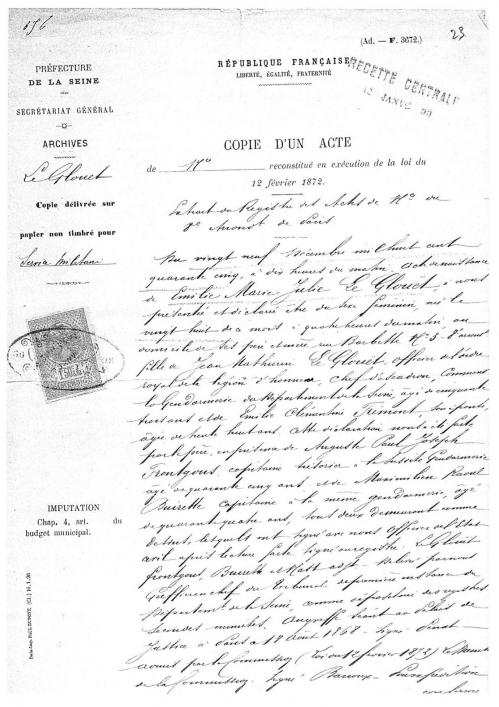 156
(Ad. — F. 3672.)
23
PRÉFECTURE
DE LA SEINE
SECRÉTARIAT GÉNÉRAL
ARCHIVES
Le Glouet
Copie délivrée sur
papier non timbré pour
Service Militaire
RÉPUBLIQUE FRANÇAISE
LIBERTÉ, ÉGALITÉ, FRATERNITÉ
RECETTE CENTRALE
COPIE D'UN ACTE
de Nce reconstitué en exécution de la loi du
12 février 1872.
Extrait du Registre des Actes de Nce du
de Paris
Du vingt neuf Décembre mil huit cent
quarante cinq, à dix heures du matin, acte de naissance
de Emilie Marie Julie Le Glouët, à nous
présentée et déclarée être du sexe féminin, née le
vingt huit de ce mois à quatre heures du matin au
domicile de ses père et mère rue Barbette No 3
fille de Jean Mathurin Le Glouët, officier de l'ordre
royal de la légion d'honneur, chef d'escadron, Commt
la Gendarmerie du Département de la Seine, âgé de cinquante
trois ans et de Emilie Clémentine Frémont, son épouse,
âgée de trente huit ans. Cette déclaration nous a été faite
par le père, en présence de Auguste Paul Joseph
Frontgous, capitaine trésorier à la susdite Gendarmerie
âgé de quarante cinq ans et de Maximilien Raoul
Buirette capitaine à la même gendarmerie, âgé
de quarante quatre ans, tous deux demeurant comme
dessus, lesquels ont signé avec nous officier de l'Etat
civil après lecture faite. Signé au registre: Le Glouët
Frontgous, Buirette et adjt. Délivré par nous
Greffier en chef du Tribunal de première instance du
Département de la Seine, comme dépositaire des registres
Secondes minutes, au greffe séant au Palais de
Justice à Paris le 18 Août 1868. Signé
admis par la Commission (Loi du 12 février 1872) Le Membre
de la Commission. Signé Barroux. Pour expédition
conforme
IMPUTATION
Chap. 4, art. du
budget municipal.